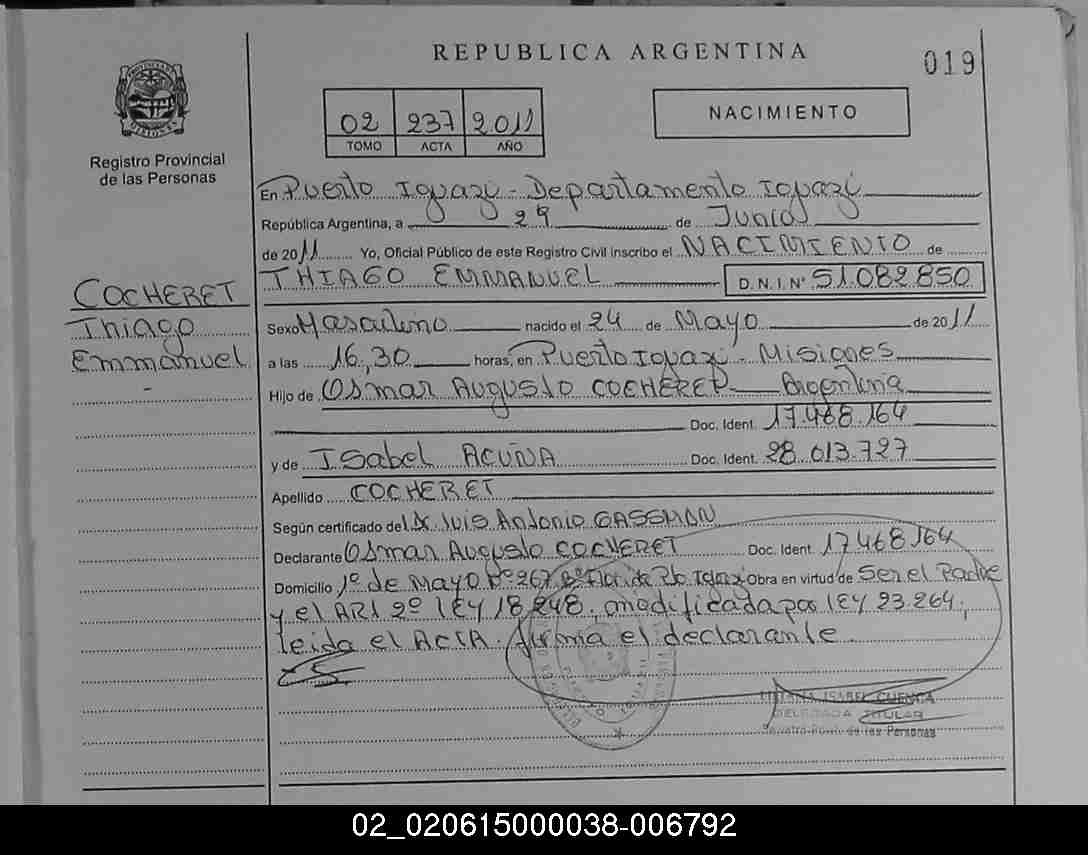 REPUBLICA ARGENTINA
019
PROVINCIA DE MISIONES
Registro Provincial
de las Personas
02 237 2.011
TOMO ACTA AÑO
NACIMIENTO
En Puerto Iguazú - Departamento Iguazú
República Argentina, a 29 de Junio
de 2011 Yo, Oficial Público de este Registro Civil inscribo el NACIMIENTO de
THIAGO EMMANUEL D.N.I. N° 51.082.850
COCHERET
Thiago
Emmanuel
-
Sexo Masculino nacido el 24 de Mayo de 2011
a las 16,30 horas, en Puerto Iguazú - Misiones
Hijo de Osmar Augusto COCHERET Argentina
Doc. Ident. 17.468.164
y de Isabel ACUÑA Doc. Ident. 28.013.727
Apellido COCHERET
Según certificado del Dr. Luis Antonio GASSMAN
Declarante Osmar Augusto COCHERET Doc. Ident. 17.468.164
Domicilio 1º de Mayo Nº 267 Bº Florida Pto Iguazú Obra en virtud de Ser el Padre
y el ART 2º LEY 18.248, modificada por LEY 23.264,
leida el ACTA. firma el declarante.
ISABEL CUENCA
DELEGADA TITULAR
Registro Provl. de las Personas
02_020615000038-006792